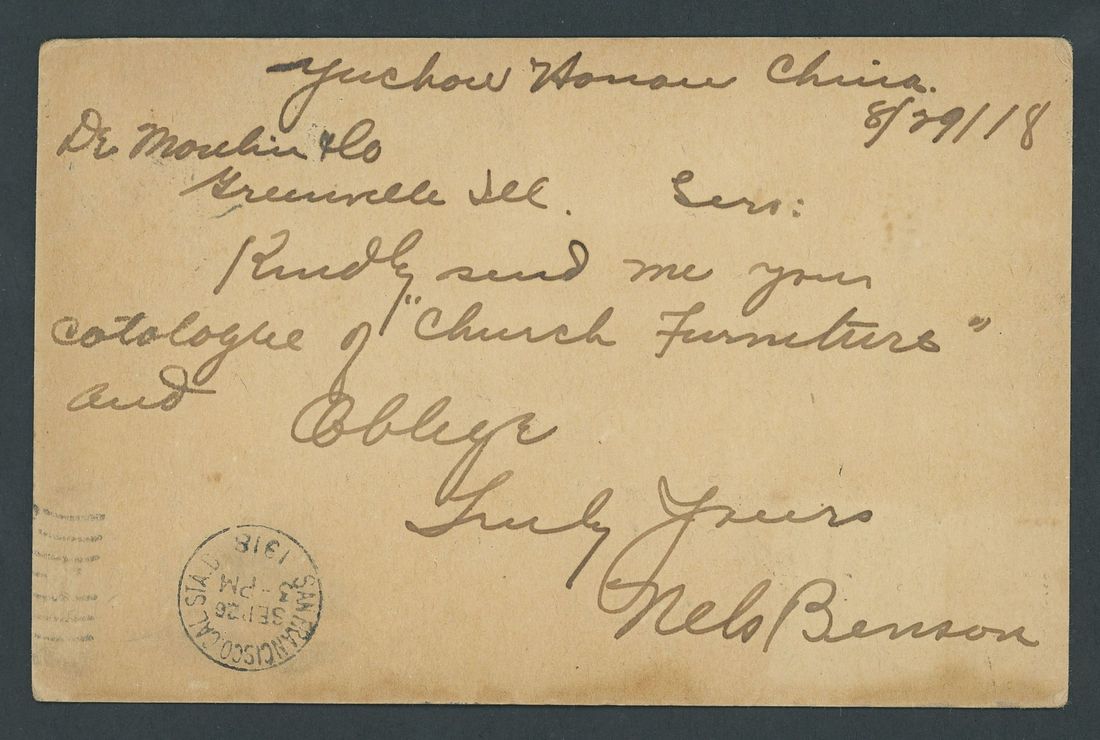 Yuchow Honan China.
8/29/18
De Moulin & Co
Greenville Ill. Sers:
Kindly send me your
catalogue of "Church Furniture"
and Oblege
Truly Yours
Nels Benson
SAN FRANCISCO, CAL. STA. D
SEP 26
-PM
1918